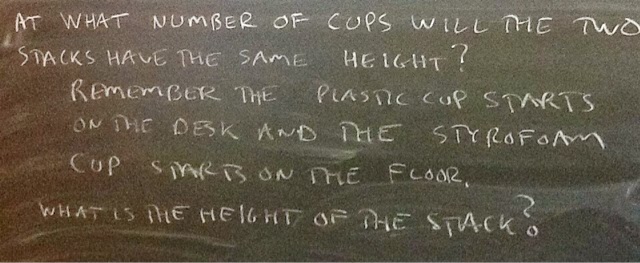 AT WHAT NUMBER OF CUPS WILL THE TWO
STACKS HAVE THE SAME HEIGHT?
REMEMBER THE PLASTIC CUP STARTS
ON THE DESK AND THE STYROFOAM
CUP STARTS ON THE FLOOR.
WHAT IS THE HEIGHT OF THE STACK?